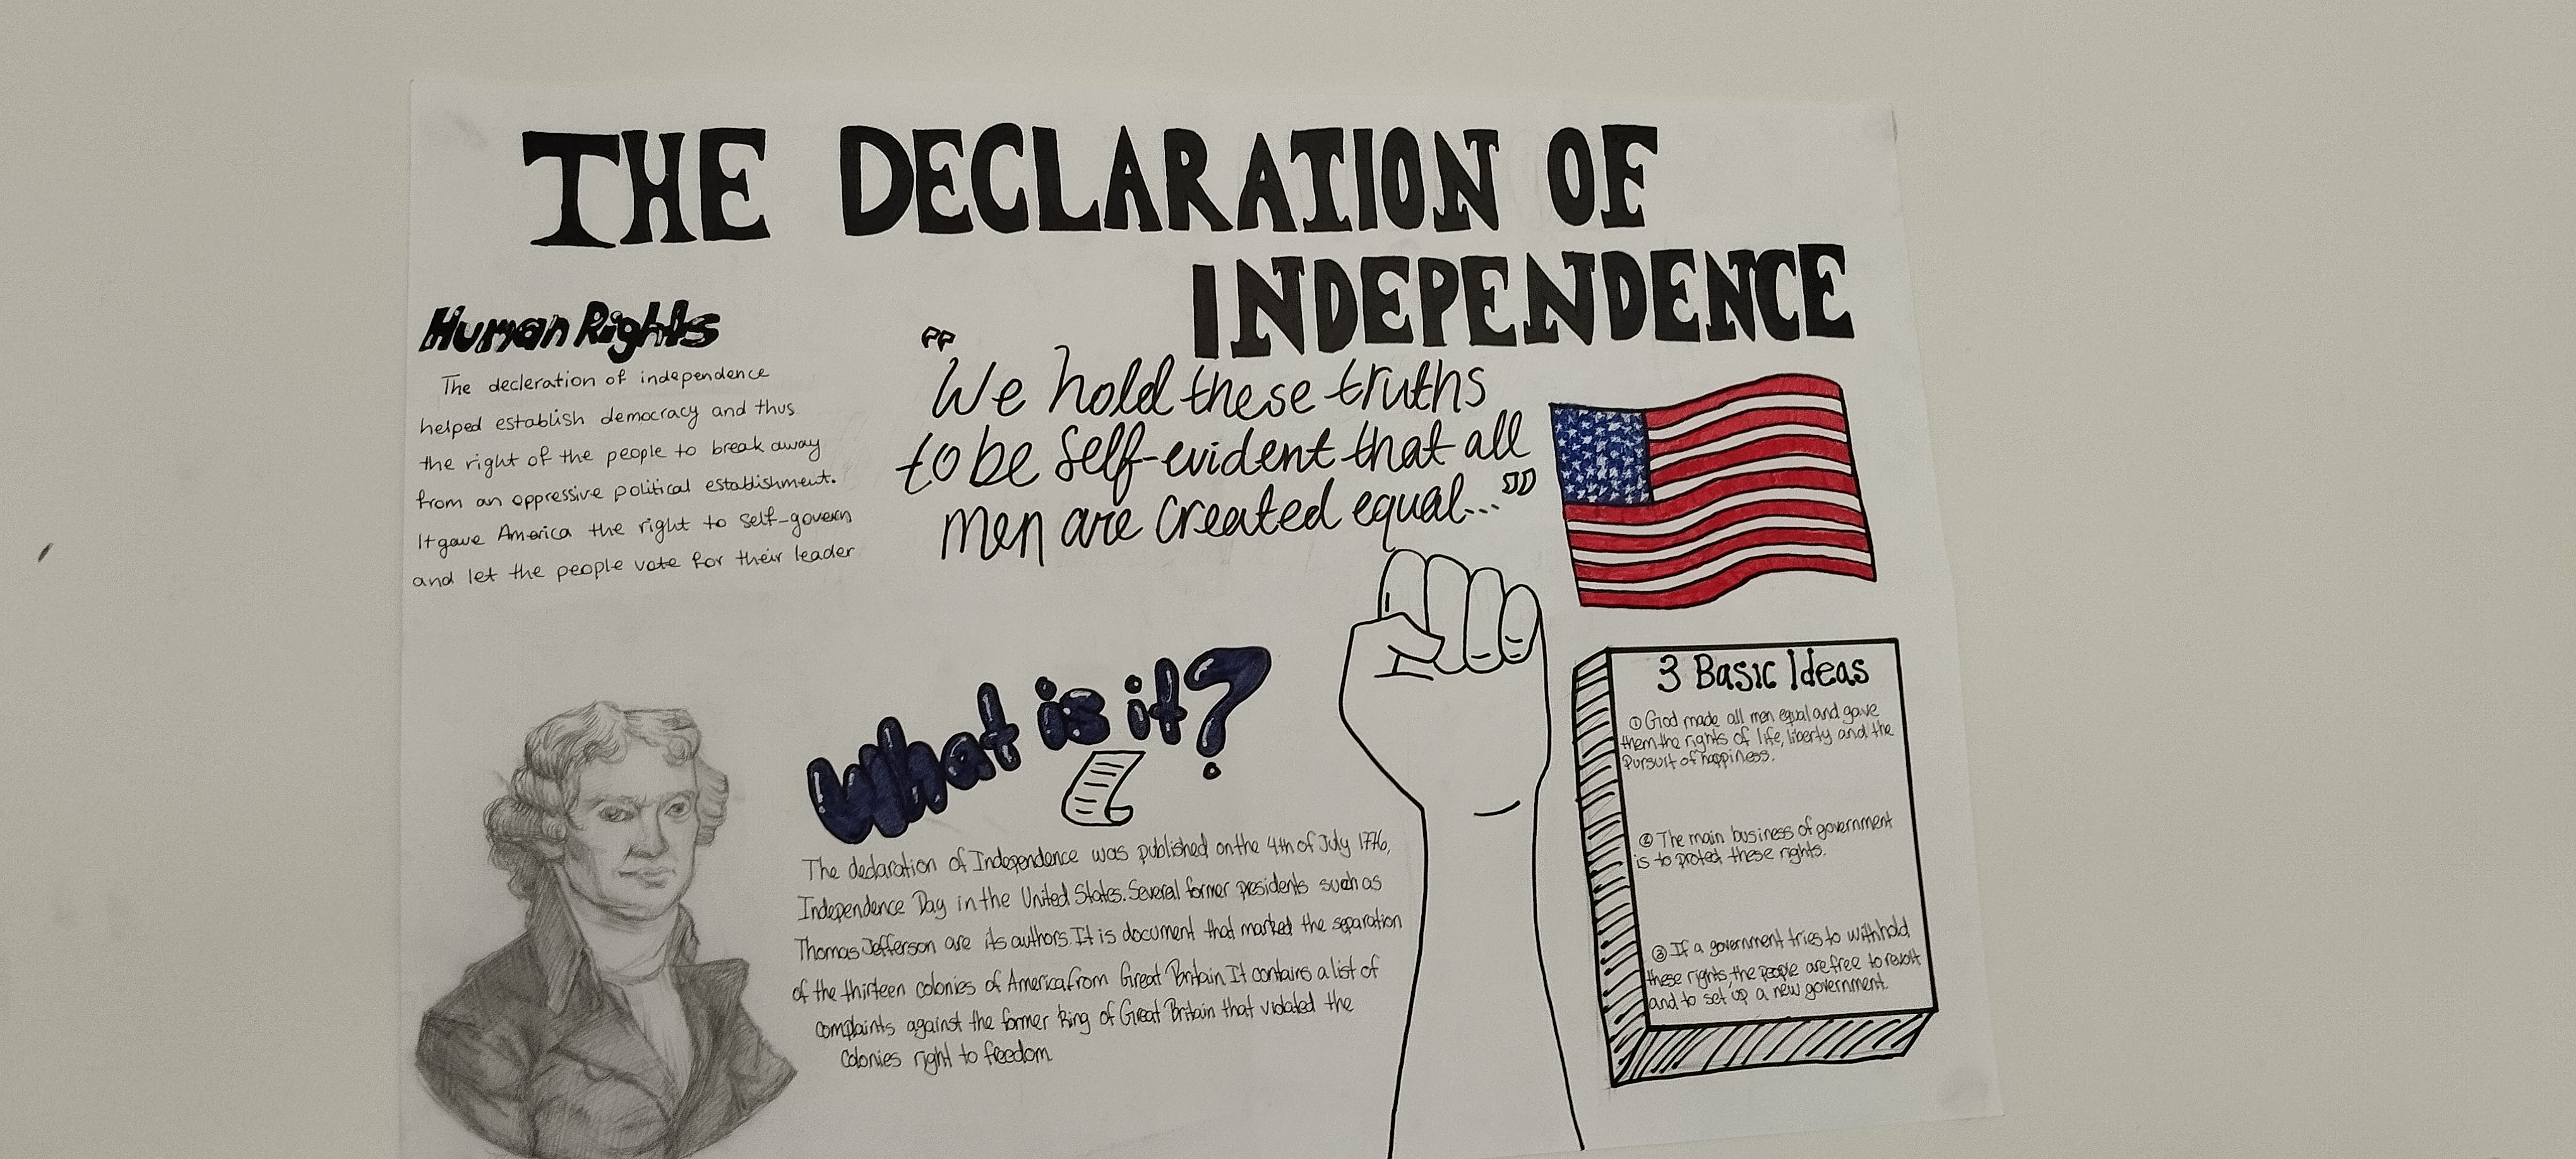 THE DECLARATION OF
INDEPENDENCE
Human Rights
The decleration of independence
helped establish democracy and thus
the right of the people to break away
from an oppressive political establishment.
It gave America the right to self-govern
and let the people vote for their leader
"We hold these truths
to be self-evident that all
men are created equal..."
What is it?
The declaration of Independence was published on the 4th of July 1776,
Independence Day in the United States. Several former presidents such as
Thomas Jefferson are its authors. It is document that marked the separation
of the thirteen colonies of America from Great Britain. It contains a list of
complaints against the former king of Great Britain that violated the
Colonies right to freedom
3 Basic Ideas
① God made all men equal and gave
them the rights of life, liberty and the
pursuit of happiness.
② The main business of government
is to protect these rights.
③ If a government tries to withhold
these rights, the people are free to revolt
and to set up a new government.